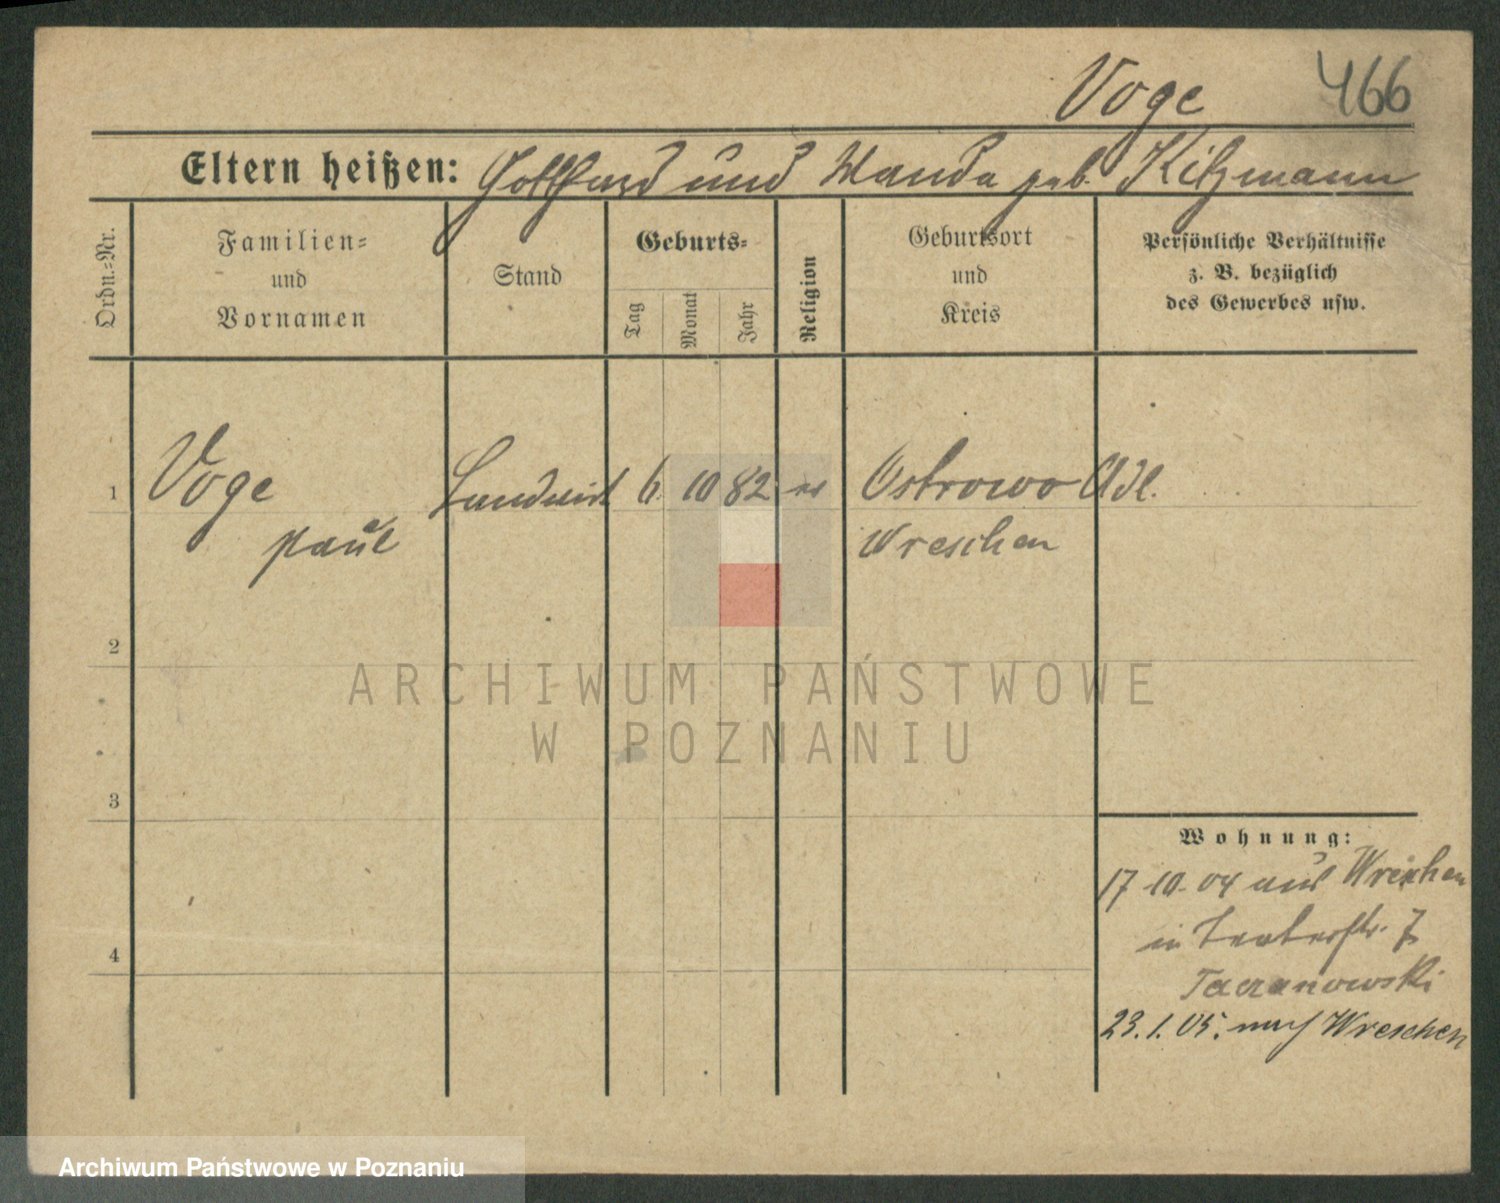 Voge 466
Eltern heißen: Gotthard und Wanda geb. Kitzmann
Ordn.=Nr.
Familien=
und
Vornamen
Stand
Geburts=
Tag
Monat
Jahr
Religion
Geburtsort
und
Kreis
Persönliche Verhältnisse
z. B. bezüglich
des Gewerbes usw.
1 Voge Landwirt 6. 10 82 Ostrowo Adl.
Paul Wreschen
2
3
4
Wohnung:
17 10. 04 aus Wreschen
in 7
Taczanowski
23. 1. 05. nach Wreschen
ARCHIWUM PAŃSTWOWE
W POZNANIU
Archiwum Państwowe w Poznaniu